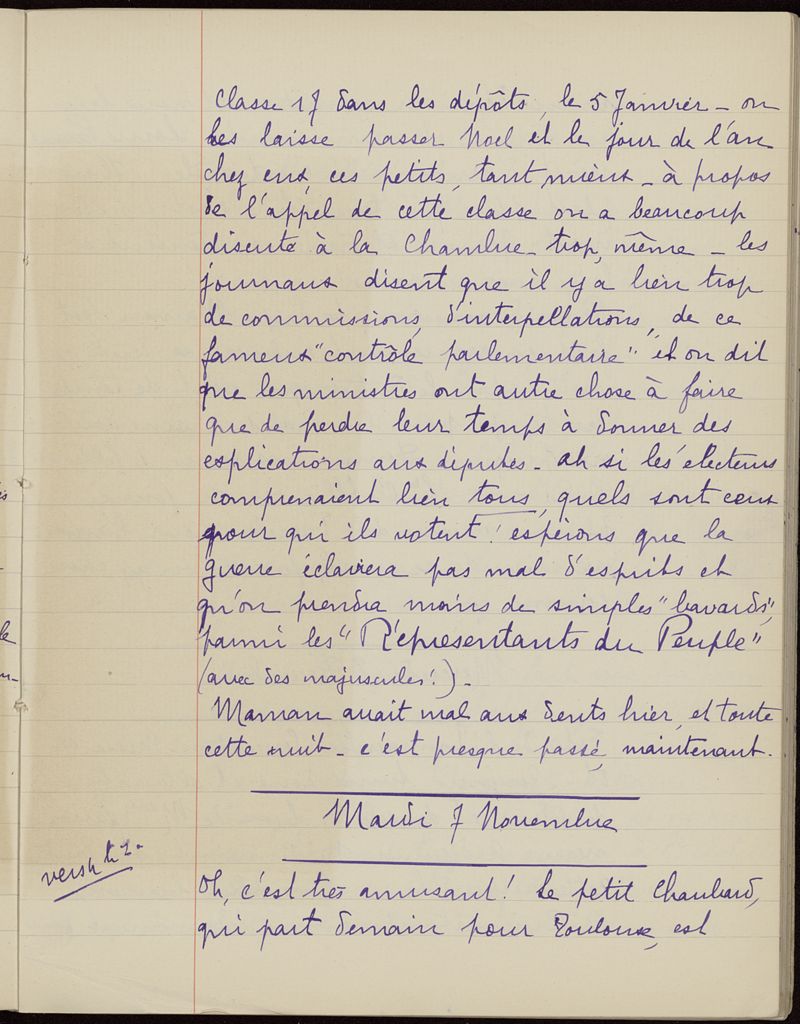 Classe 17 dans les dépôts, le 5 Janvier - on
les laisse passer Noel et le jour de l'an
chez eux, ces petits, tant mieux - à propos
de l'appel de cette classe on a beaucoup
discuté à la Chambre - trop, même - les
journaux disent que il y a bien trop
de commissions, d'interpellations, de ce
fameux "contrôle parlementaire" et on dit
que les ministres ont autre chose à faire
que de perdre leur temps à donner des
explications aux députés - ah si les électeurs
comprenaient bien tous, quels sont ceux
pour qui ils votent ! espérons que la
guerre éclairera pas mal d'esprits et
qu'on prendra moins de simples "bavards",
parmi les "Représentants du Peuple"
(avec des majuscules !) -
Maman avait mal aux dents hier, et toute
cette nuit - c'est presque passé, maintenant.
Mardi 7 Novembre
vers 4 h 1/2 -
Oh, c'est très amusant ! Le petit Chaubard,
qui part demain pour Toulouse, est
le